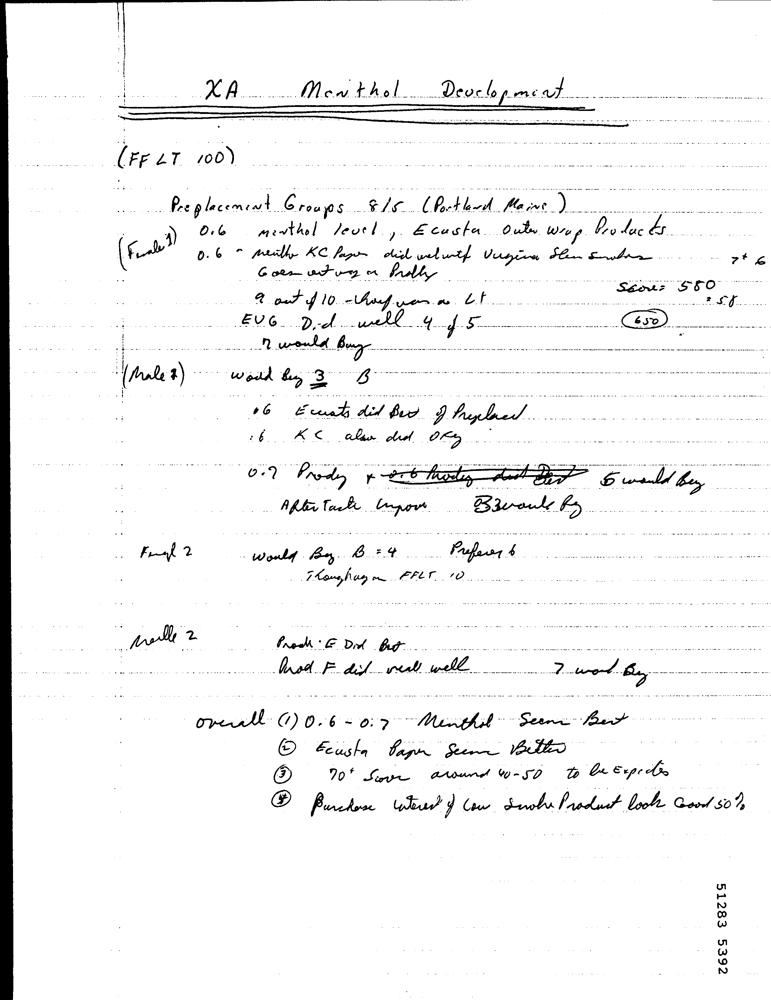 XA Menthol Development
(FFLT 100)
Preplacement Groups 8/5 (Portland Maine)
(Female 1) 0.6 menthol level, Ecusta outer wrap Products
0.6 - menthol KC Paper did well with Virginia Slim Smokers 7+ 6
Goes out way on Prolly
Score= 580
9 out of 10 - as Lt = 58
EVG Did well 4 of 5 650
7 would Buy
(Male 1) would Buy 3 B
.6 did Best of Preplaced
.6 KC also did Okay
0.7 Prody 5 would Buy
After Taste Improv 3 would By
2 would Buy B = 4 Prefer 6
FFLT 10
Malle 2 Prod. E Did Best
Prod F did real well 7 woul Buy
overall (1) 0.6 - 0.7 Menthol Seem Best
(2) Ecusta Paper Seem Better
(3) 70+ Score around 40-50 to be Expected
(4) Purchase interest of Low Smoke Product look Good 50%
51283 5392